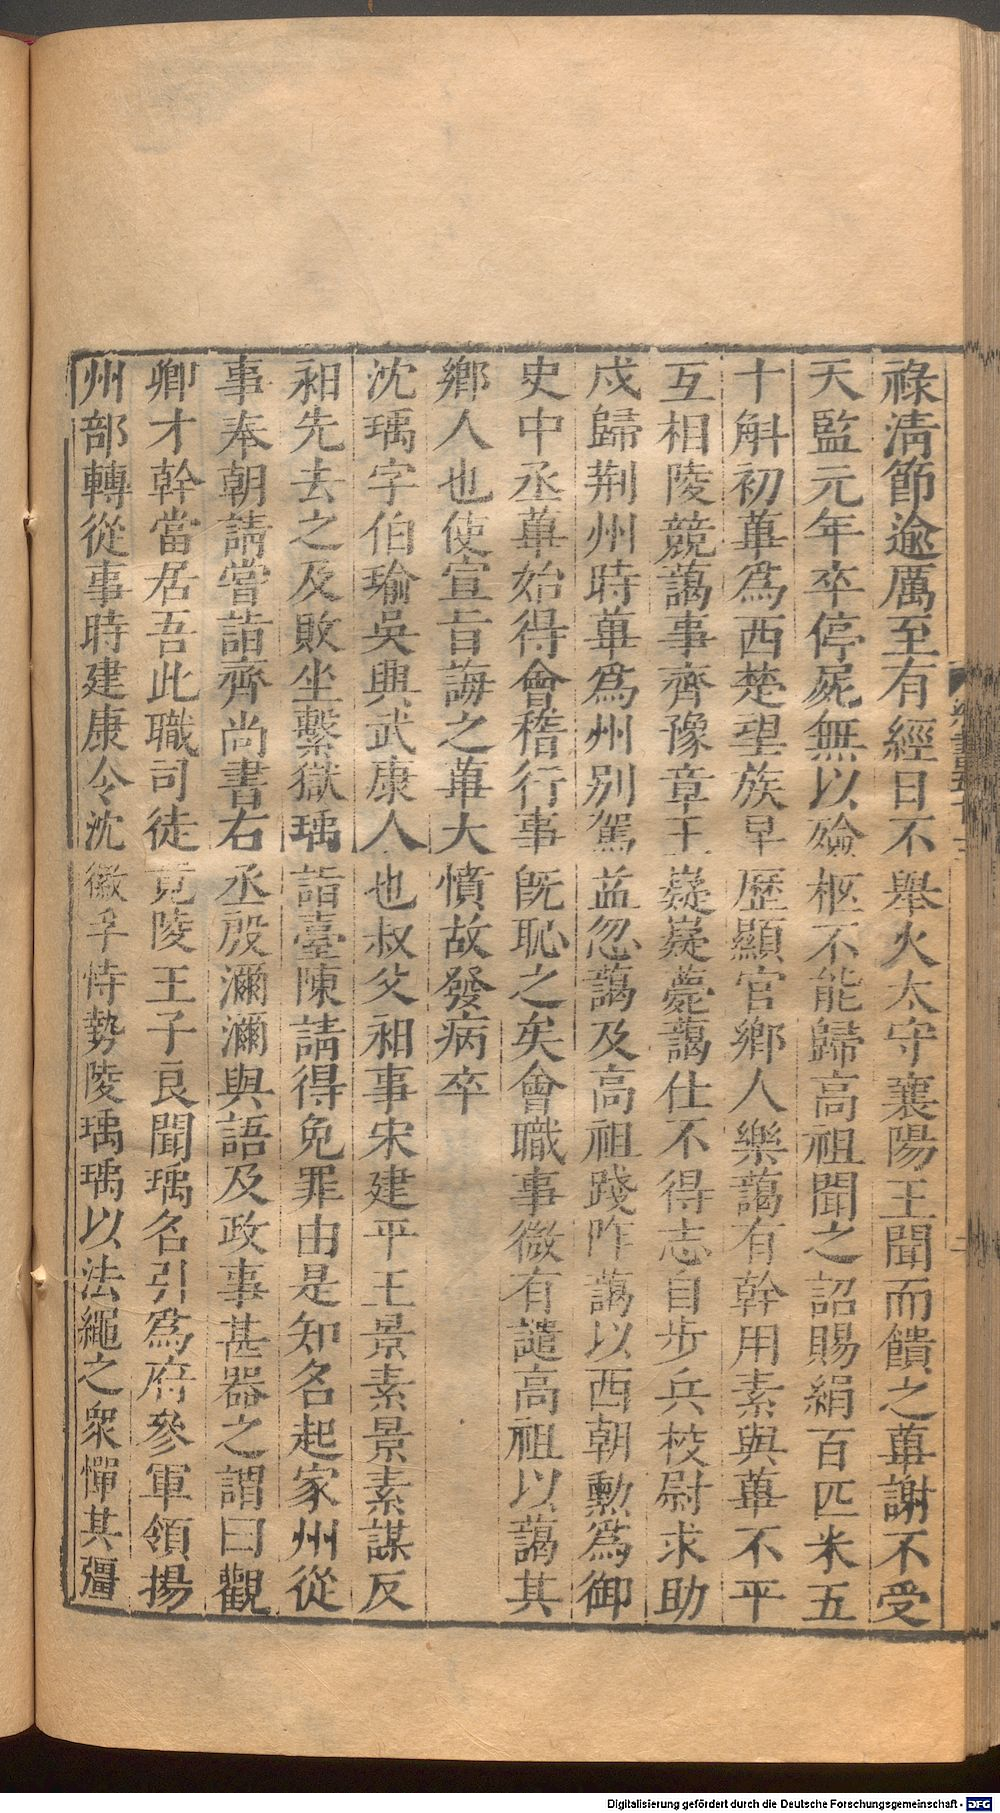 祿清節逾厲至有經日不舉火太守襄陽王聞而饋之蓽謝不受
天監元年卒停屍無以殮柩不能歸高祖聞之詔賜絹百匹米五
十斛初蓽爲西楚望族早歷顯官鄉人樂藹有幹用素與蓽不平
互相陵競藹事齊豫章王嶷嶷薨藹仕不得志自步兵校尉求助
戍歸荆州時蓽爲州別駕益忽藹及高祖踐阼藹以西朝勲爲御
史中丞蓽始得會稽行事旣恥之矣會職事微有譴高祖以藹其
鄉人也使宣旨誨之蓽大憤故發病卒
沈瑀字伯瑜吳興武康人也叔父昶事宋建平王景素景素謀反
昶先去之及敗坐繫獄瑀詣臺陳請得免罪由是知名起家州從
事奉朝請嘗詣齊尚書右丞殷瀰瀰與語及政事甚器之謂曰觀
卿才幹當居吾此職司徒竟陵王子良聞瑀名引爲府參軍領揚
州部轉從事時建康令沈徽孚恃勢陵瑀瑀以法繩之衆憚其彊
Digitalisierung gefördert durch die Deutsche Forschungsgemeinschaft - DFG